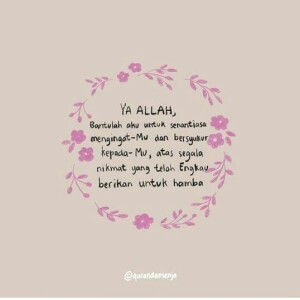 YA ALLAH,
Bantulah aku untuk senantiasa
mengingat-Mu dan bersyukur
kepada-Mu, atas segala
nikmat yang telah Engkau
berikan untuk hamba
@qurandamenje